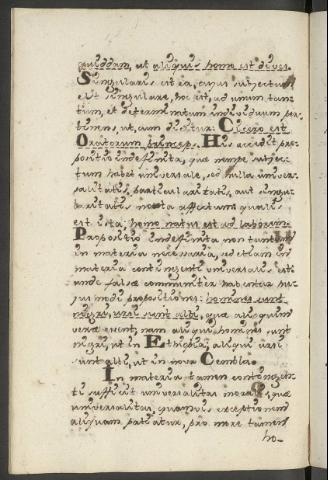 quiddam, ut aliquis homo est dives.
Singularis est ea, cujus subjectum
est singulare, hoc est, ad unum tan-
tum, et determinatum individuum per-
tinens, ut, cum dicitur: Cicero est
Oratorum princeps. His accedit pro-
positio indefinita, quæ nempe subjec-
tum habet universale, sed nulla univer-
salitatis, particularitatis, aut singu-
laritatis nota affectum, qualis
est ista: homo natus est ad laborem.
Propositio indefinita non tantum
in materia necessaria, sed etiam in
materia contingenti universalis est:
unde falsæ communiter habentur hu-
jus modi propositiones: homines sunt
nigri, ursi sunt albi, quæ alioquin
veræ essent, nam aliqui homines sunt
nigri, ut in Ethiopia, aliqui ursi
sunt albi, ut in nova Cembla.
In materia tamen contingen-
ti sufficit universalitas moralis, quæ
universalitas, quamvis exceptionem
aliquam patiatur, pro more tamen
ho-